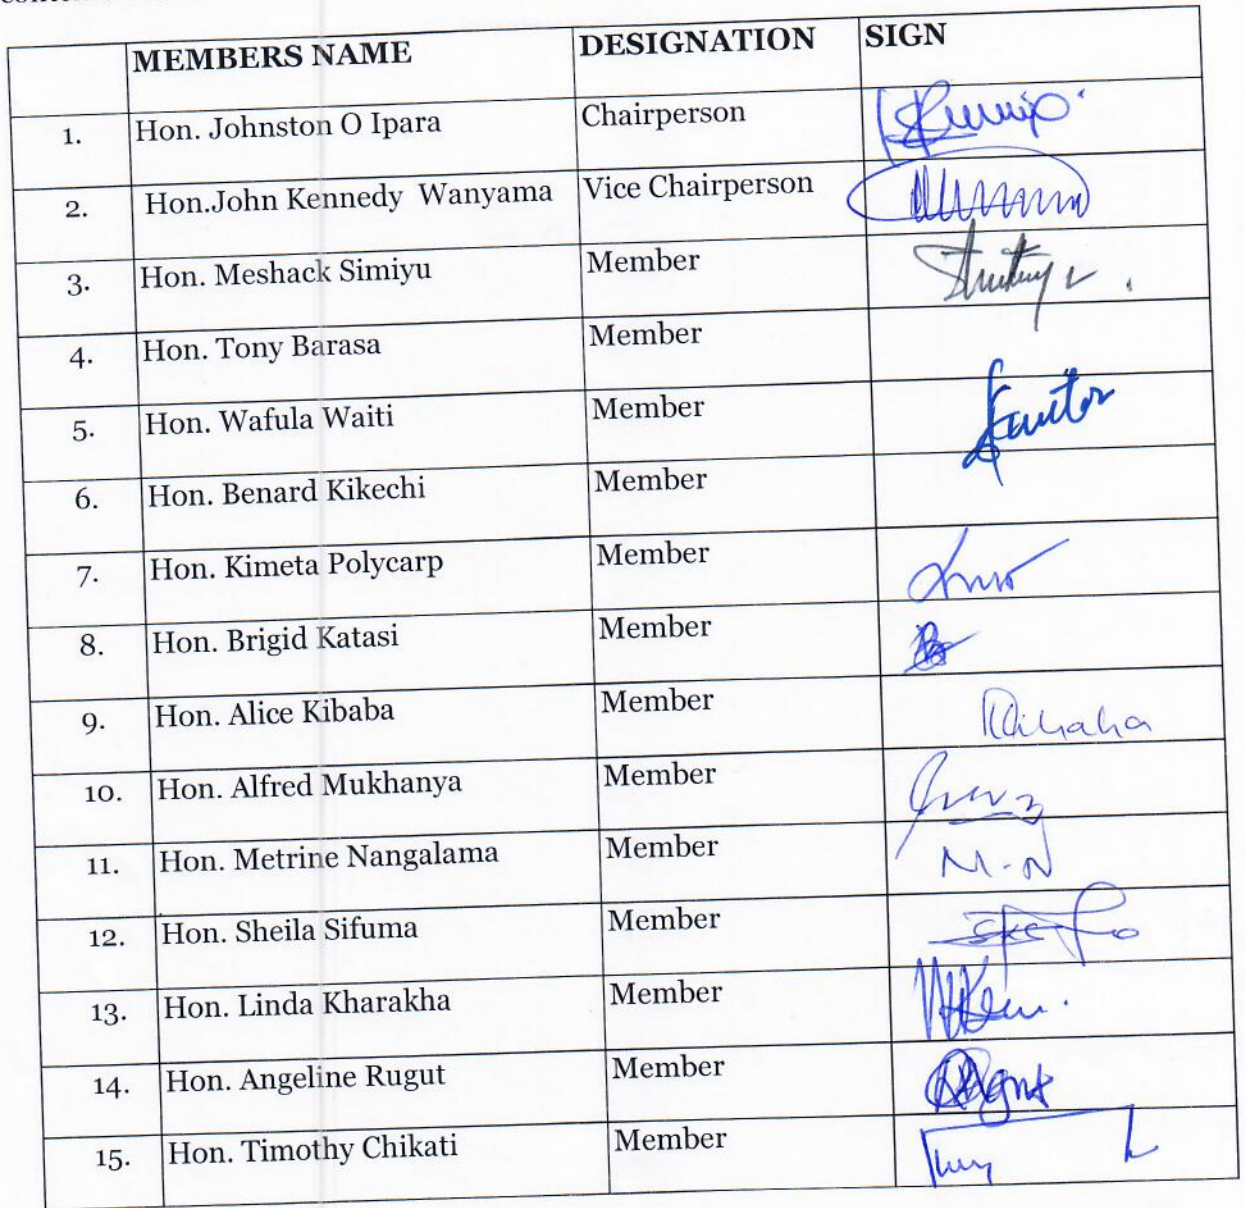 MEMBERS NAME DESIGNATION SIGN
1. Hon. Johnston O Ipara Chairperson
2. Hon.John Kennedy Wanyama Vice Chairperson
3. Hon. Meshack Simiyu Member
4. Hon. Tony Barasa Member
5. Hon. Wafula Waiti Member
6. Hon. Benard Kikechi Member
7. Hon. Kimeta Polycarp Member
8. Hon. Brigid Katasi Member
9. Hon. Alice Kibaba Member
10. Hon. Alfred Mukhanya Member
11. Hon. Metrine Nangalama Member M-N
12. Hon. Sheila Sifuma Member
13. Hon. Linda Kharakha Member
14. Hon. Angeline Rugut Member
15. Hon. Timothy Chikati Member